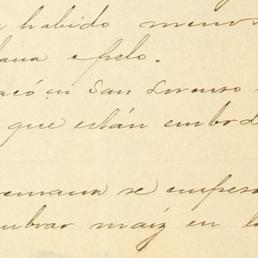 habido menos
apelo.
en San Lorenzo
que están embrod
semana se empesa
mbrar maiz en la